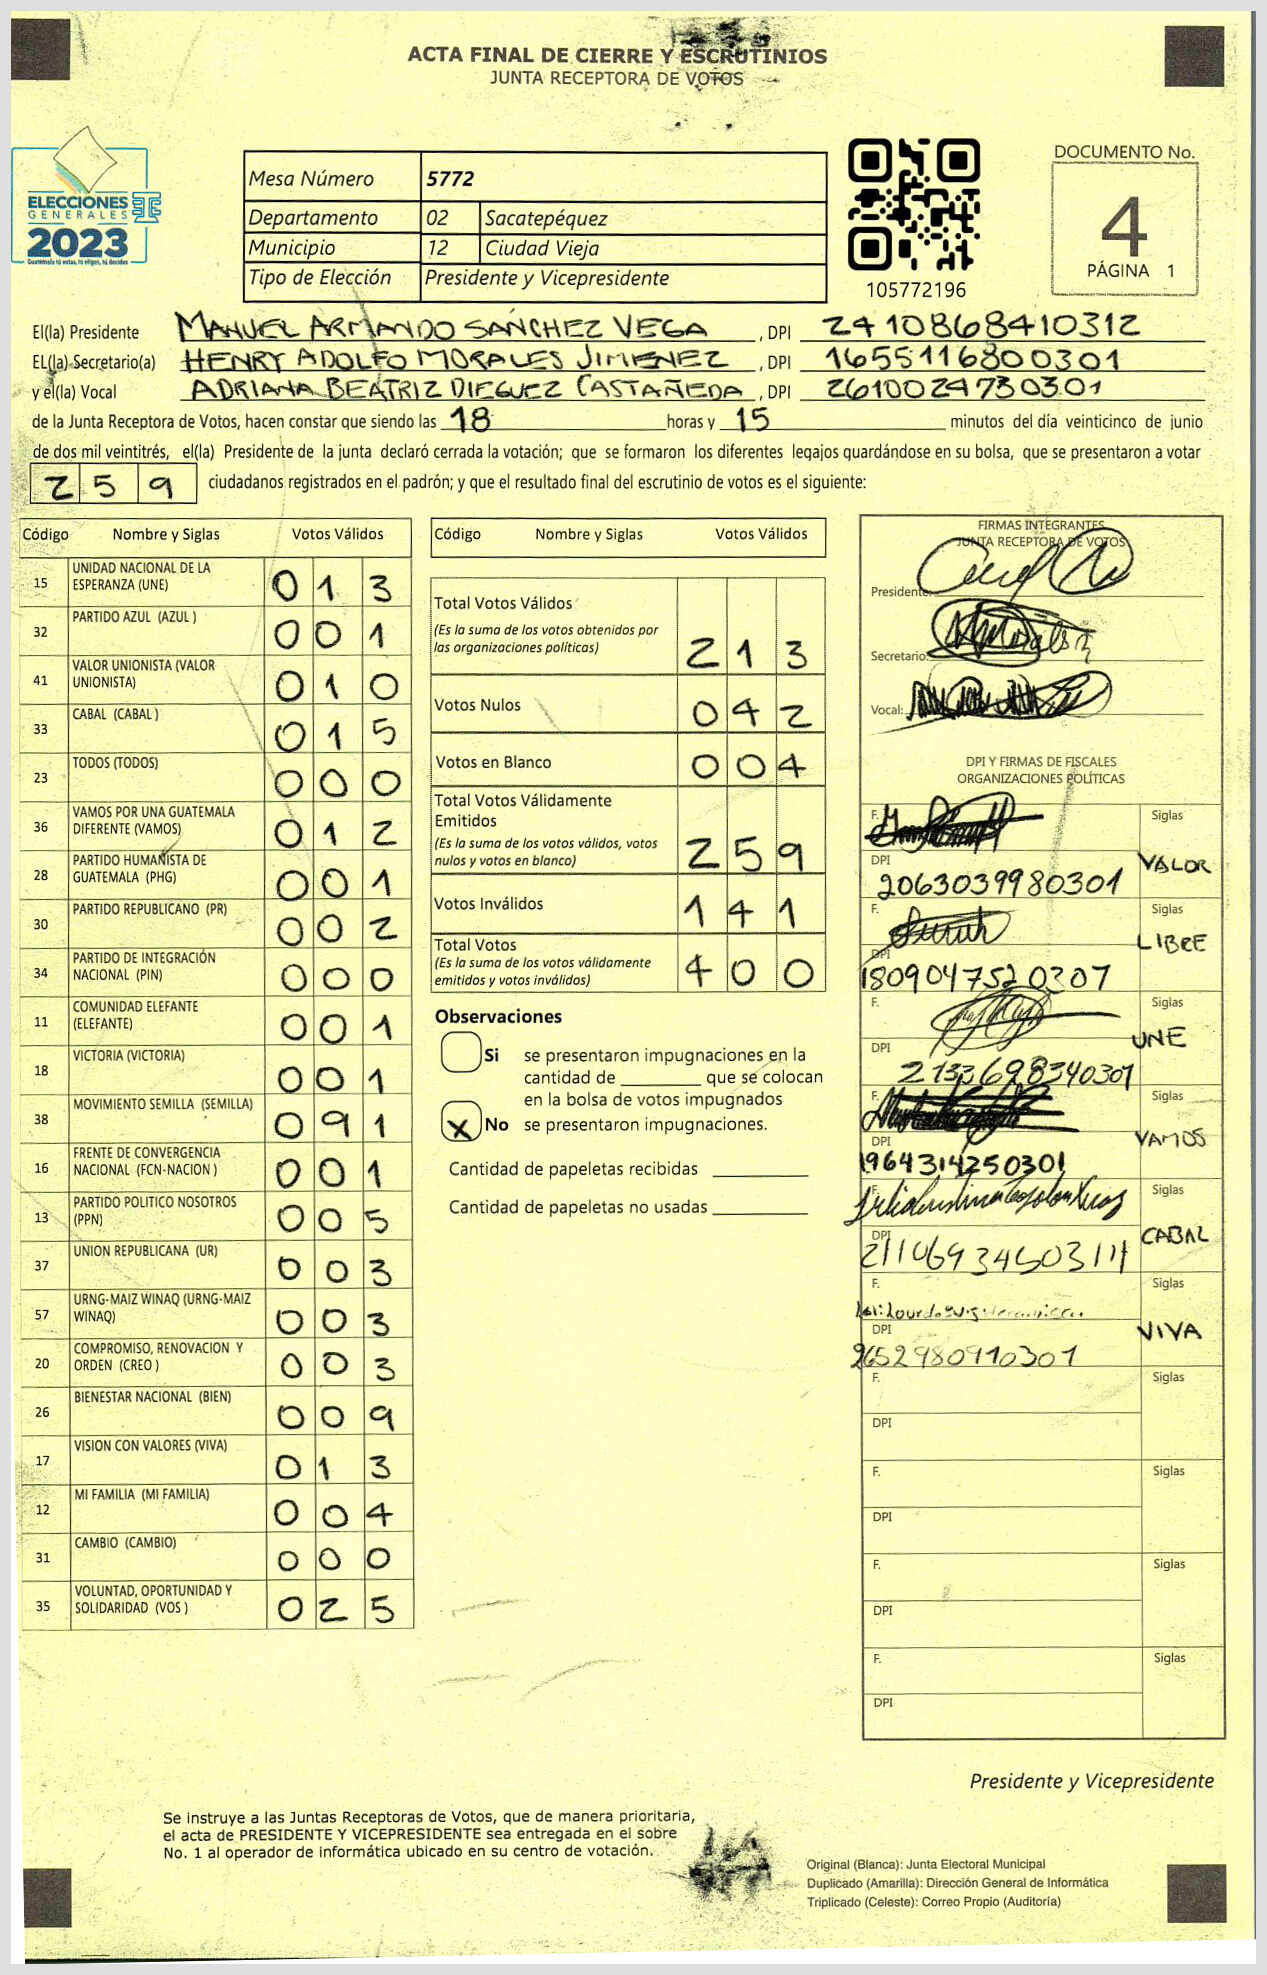 ACTA FINAL DE CIERRE Y ESCRUTINIOS
JUNTA RECEPTORA DE VOTOS
ELECCIONES
GENERALES
2023
Guatemala tú votas, tú eliges, tú decides
Mesa Número 5772
Departamento 02 Sacatepéquez
Municipio 12 Ciudad Vieja
Tipo de Elección Presidente y Vicepresidente
105772196
DOCUMENTO No.
4
PÁGINA 1
El(la) Presidente MANUEL ARMANDO SÁNCHEZ VEGA , DPI 2410868410312
EL(la) Secretario(a) HENRY ADOLFO MORALES JIMENEZ , DPI 1655116800301
y el(la) Vocal ADRIANA BEATRIZ DIEGUEZ CASTAÑEDA , DPI 2610024730301
de la Junta Receptora de Votos, hacen constar que siendo las 18 horas y 15 minutos del día veinticinco de junio
de dos mil veintitrés, el(la) Presidente de la junta declaró cerrada la votación; que se formaron los diferentes legajos guardándose en su bolsa, que se presentaron a votar
259 ciudadanos registrados en el padrón; y que el resultado final del escrutinio de votos es el siguiente:
Código Nombre y Siglas Votos Válidos
15 UNIDAD NACIONAL DE LA ESPERANZA (UNE) 013
32 PARTIDO AZUL (AZUL ) 001
41 VALOR UNIONISTA (VALOR UNIONISTA) 010
33 CABAL (CABAL ) 015
23 TODOS (TODOS) 000
36 VAMOS POR UNA GUATEMALA DIFERENTE (VAMOS) 012
28 PARTIDO HUMANISTA DE GUATEMALA (PHG) 001
30 PARTIDO REPUBLICANO (PR) 002
34 PARTIDO DE INTEGRACIÓN NACIONAL (PIN) 000
11 COMUNIDAD ELEFANTE (ELEFANTE) 001
18 VICTORIA (VICTORIA) 001
38 MOVIMIENTO SEMILLA (SEMILLA) 091
16 FRENTE DE CONVERGENCIA NACIONAL (FCN-NACION ) 001
13 PARTIDO POLITICO NOSOTROS (PPN) 005
37 UNION REPUBLICANA (UR) 003
57 URNG-MAIZ WINAQ (URNG-MAIZ WINAQ) 003
20 COMPROMISO, RENOVACION Y ORDEN (CREO ) 003
26 BIENESTAR NACIONAL (BIEN) 009
17 VISION CON VALORES (VIVA) 013
12 MI FAMILIA (MI FAMILIA) 004
31 CAMBIO (CAMBIO) 000
35 VOLUNTAD, OPORTUNIDAD Y SOLIDARIDAD (VOS ) 025
Código Nombre y Siglas Votos Válidos
Total Votos Válidos
(Es la suma de los votos obtenidos por
las organizaciones políticas) 213
Votos Nulos 042
Votos en Blanco 004
Total Votos Válidamente
Emitidos
(Es la suma de los votos válidos, votos
nulos y votos en blanco) 259
Votos Inválidos 141
Total Votos
(Es la suma de los votos válidamente
emitidos y votos inválidos) 400
Observaciones
Si se presentaron impugnaciones en la
cantidad de ________ que se colocan
en la bolsa de votos impugnados
X No se presentaron impugnaciones.
Cantidad de papeletas recibidas
Cantidad de papeletas no usadas
FIRMAS INTEGRANTES
JUNTA RECEPTORA DE VOTOS
Presidente:
Secretario:
Vocal:
DPI Y FIRMAS DE FISCALES
ORGANIZACIONES POLÍTICAS
F. Siglas
DPI 2063039980301 VALOR
F. Siglas
DPI 1809047520307 LIBRE
F. Siglas
DPI 2133698340301 UNE
F. Siglas
DPI 1964314250301 VAMOS
F. Siglas
DPI CABAL
F. Siglas
DPI 2652980910301 VIVA
F. Siglas
DPI
F. Siglas
DPI
F. Siglas
DPI
F. Siglas
DPI
Presidente y Vicepresidente
Se instruye a las Juntas Receptoras de Votos, que de manera prioritaria,
el acta de PRESIDENTE Y VICEPRESIDENTE sea entregada en el sobre
No. 1 al operador de informática ubicado en su centro de votación.
Original (Blanca): Junta Electoral Municipal
Duplicado (Amarilla): Dirección General de Informática
Triplicado (Celeste): Correo Propio (Auditoría)